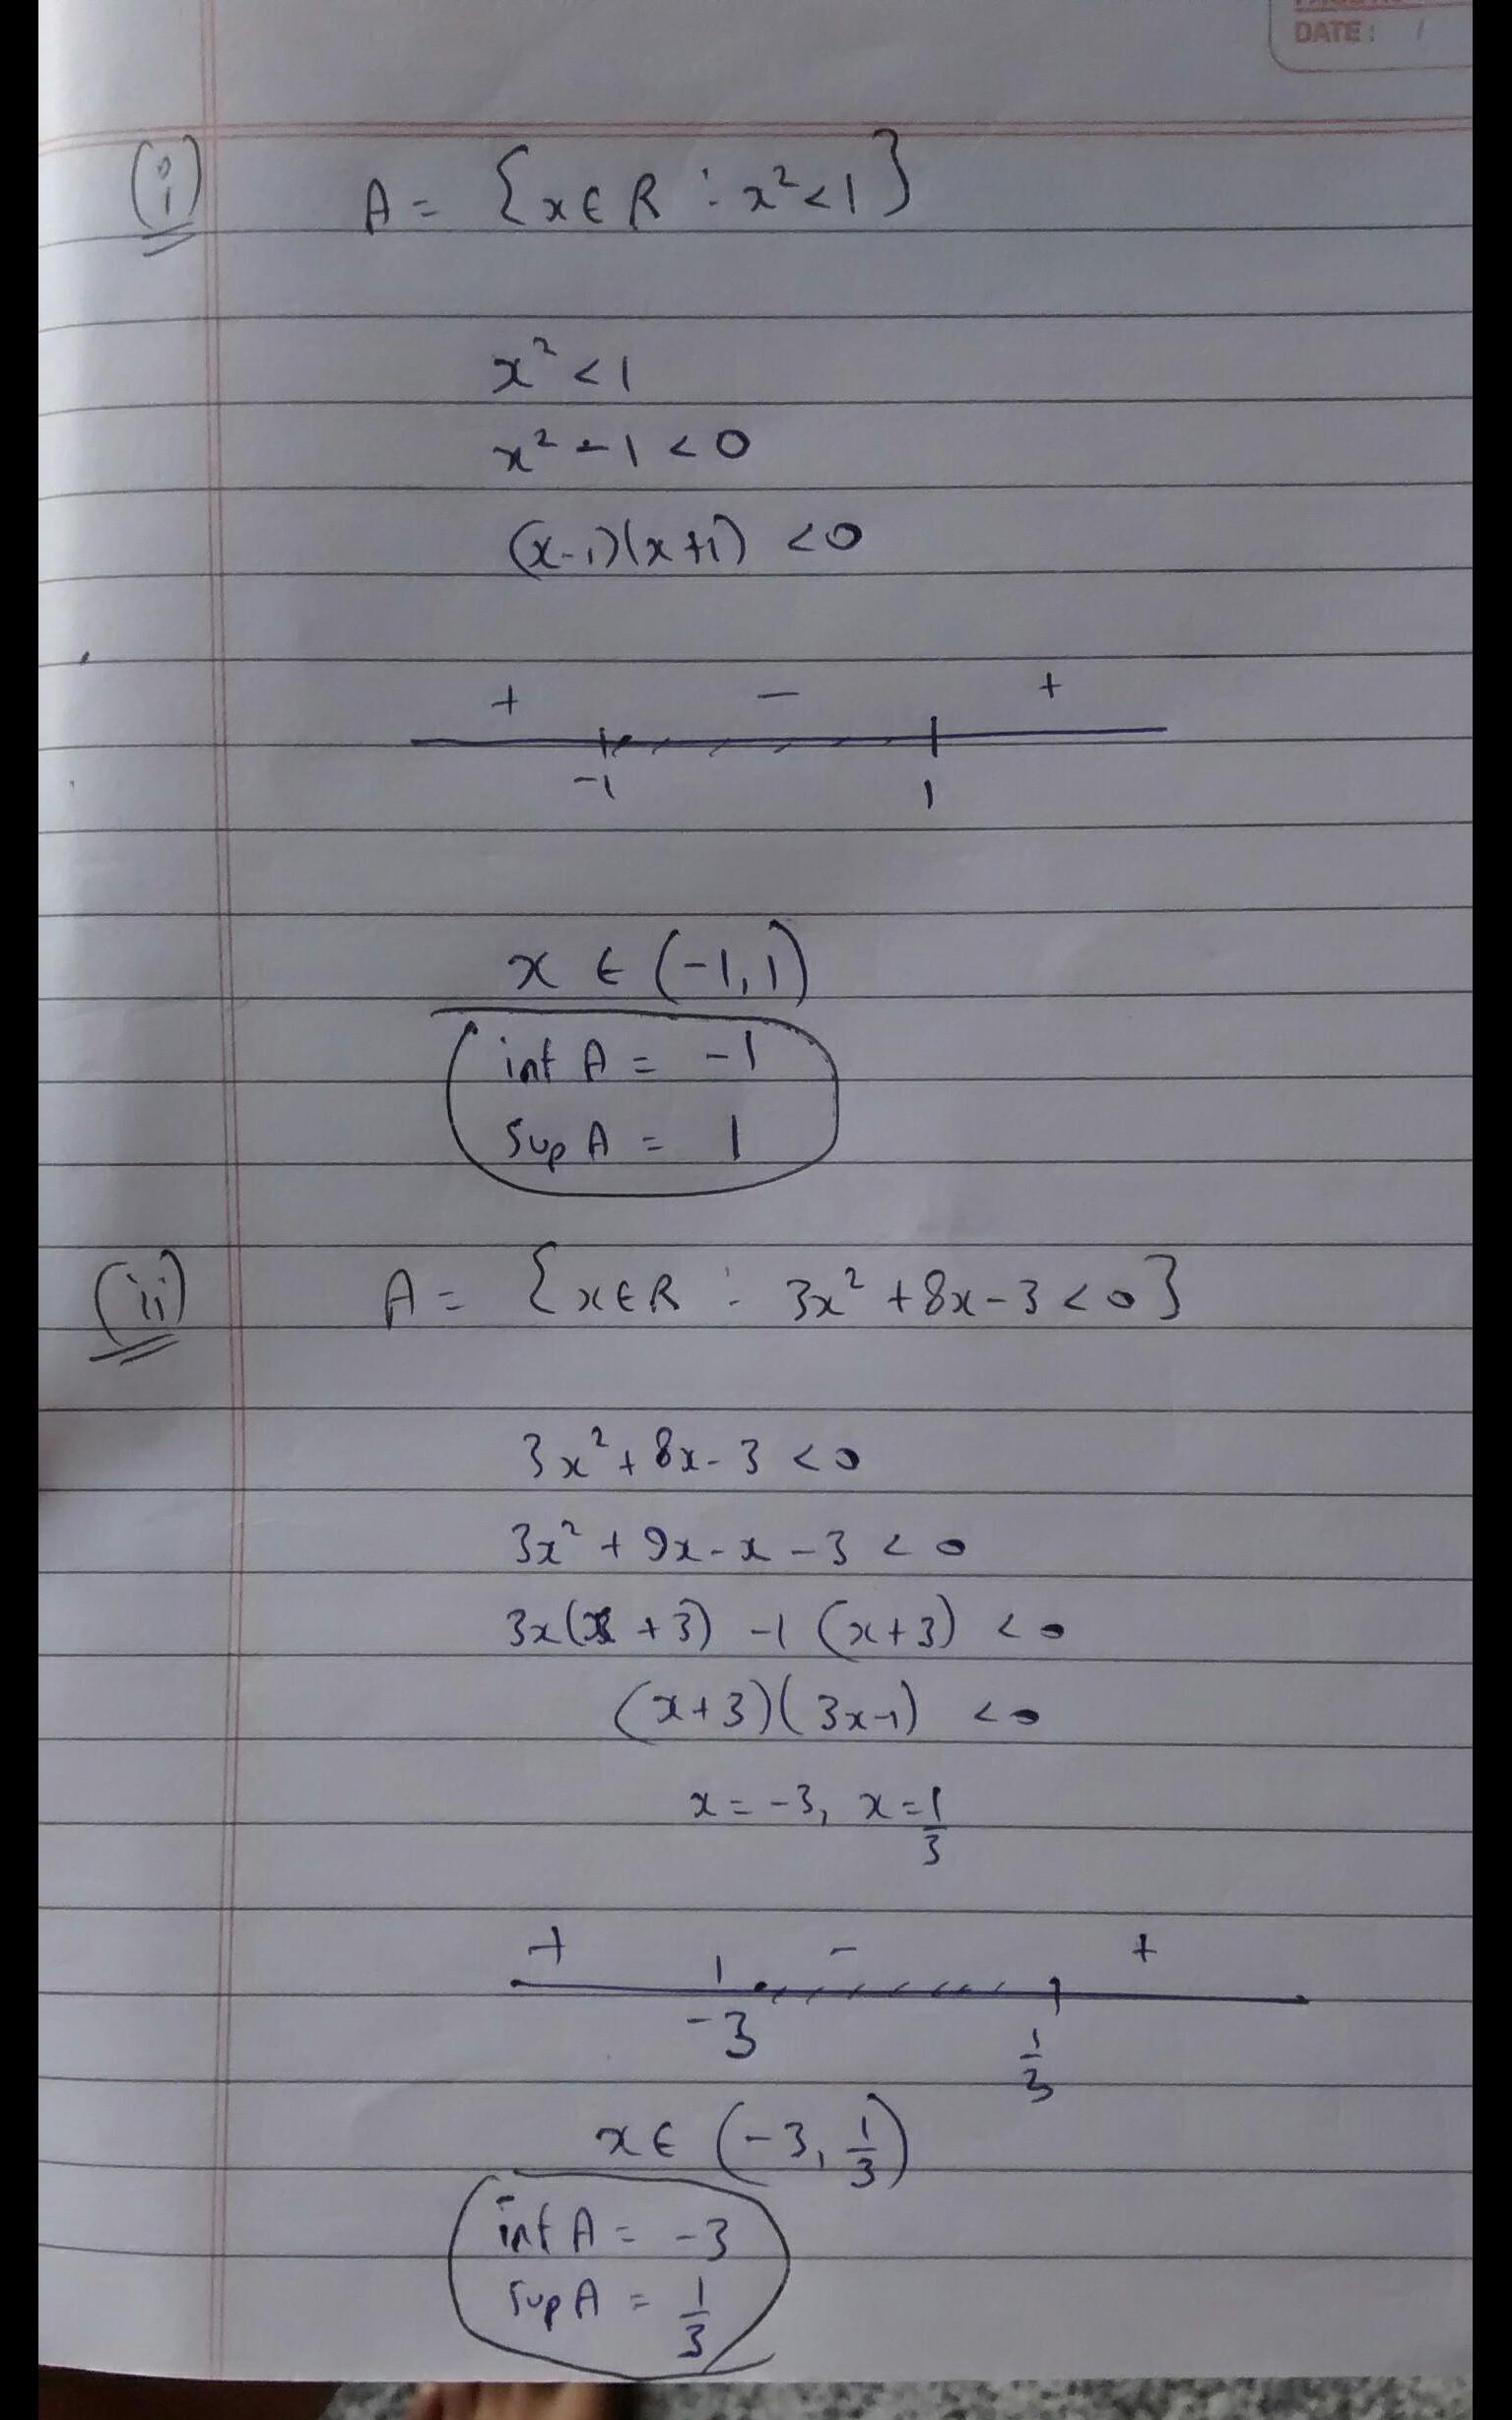 DATE: /
(i) A = {x∈R : x²<1}
x² < 1
x² - 1 < 0
(x-1)(x+1) < 0
+ - +
-1 1
x ∈ (-1, 1)
inf A = -1
Sup A = 1
(ii) A = {x∈R : 3x² + 8x - 3 < 0}
3x² + 8x - 3 < 0
3x² + 9x - x - 3 < 0
3x(x + 3) - 1 (x + 3) < 0
(x + 3)(3x - 1) < 0
x = -3, x = 1/3
+ - +
-3 1/3
x ∈ (-3, 1/3)
inf A = -3
Sup A = 1/3